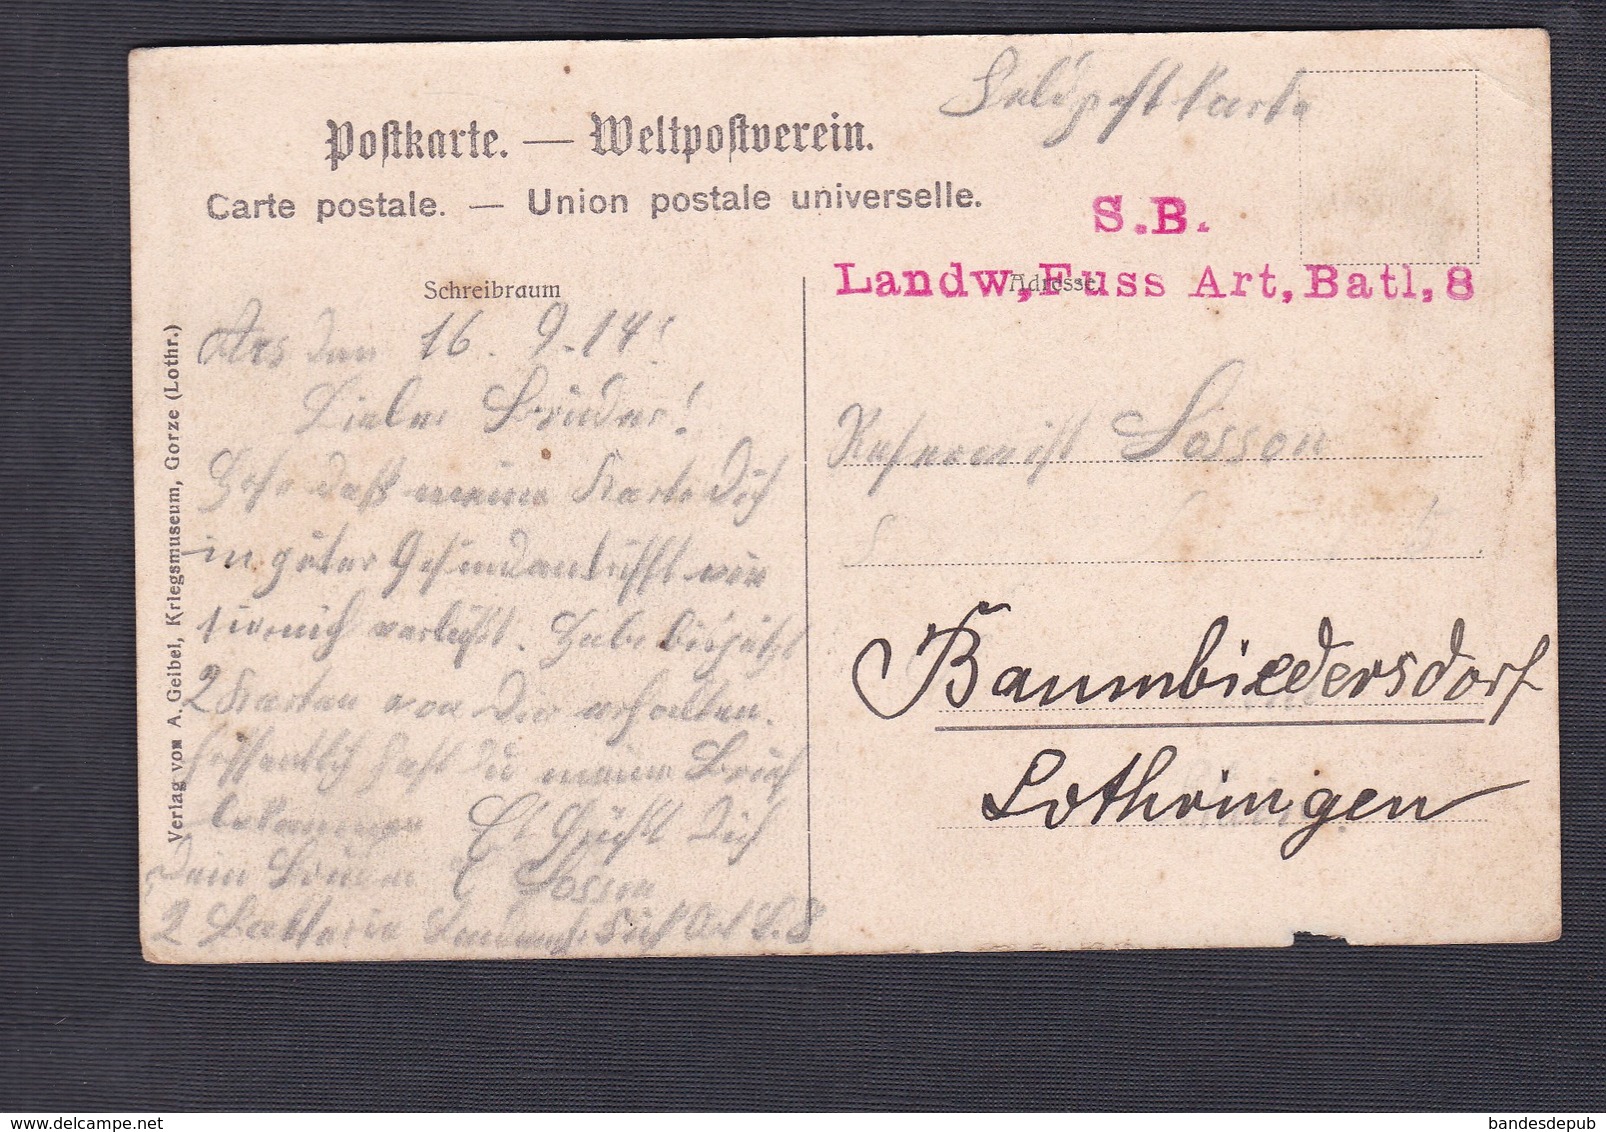 Feldpostkarte
Postkarte. — Weltpostverein.
Carte postale. — Union postale universelle.
S.B.
Landw, Fuss Art, Batl, 8
Schreibraum
Adresse.
Ars den 16. 9. 14.
Lieber Bruder!
Hofe daß meine Karte Dich
in guter Gesundheit antrifft wie
sie mich verläßt. Habe bis jetzt
2 Karten von Dir erhalten.
Hoffentlich hast du meinen Brief
bekommen Es Grüßt Dich
Dein Bruder Sosson
2 Batterie Landwehr Fuß Art B. 8
Reservist Sosson
Baumbiedersdorf
Lothringen
Verlag von A. Geibel, Kriegsmuseum, Gorze (Lothr.)
bandesdepub